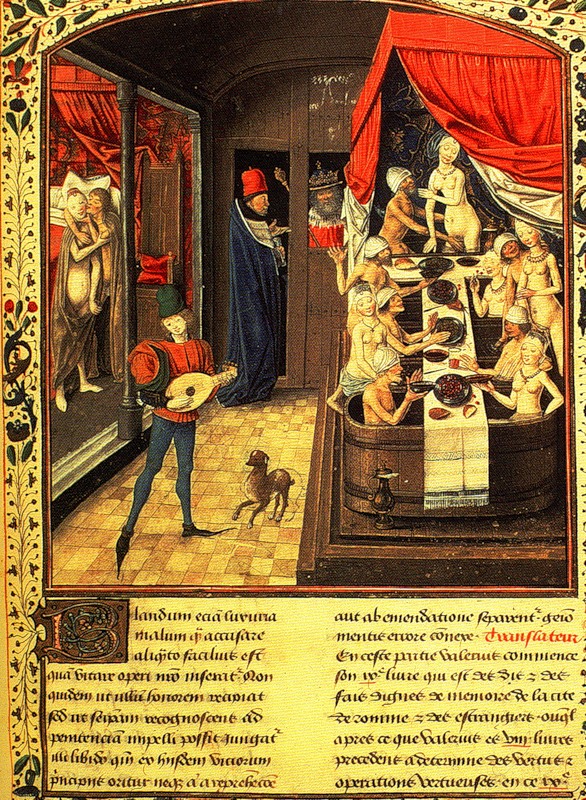 Blandum eciã luxuria
malum qd accusare
aliqto facilius est
quã vitare operi nrõ inserat. Non
quidem ut ullũ honorem recipiat
sed ut seipsam recognoscens ad
penitenciam impelli possit jungat
illi libido qm ex hijsdem viciorum
principiis oritur neq a a reprehẽcõe
aut ab emendatione separent gemi
mentis errore cõnexe. Translateur
En ceste partie valerius commence
son ixe livre qui est des diz & des
fais dignes de memoire de la cite
de romme & des estrangiers. ouql
apres ce que valerius es viii livres
precedens a determine des vertus &
operations vertueuses. en ce ixe